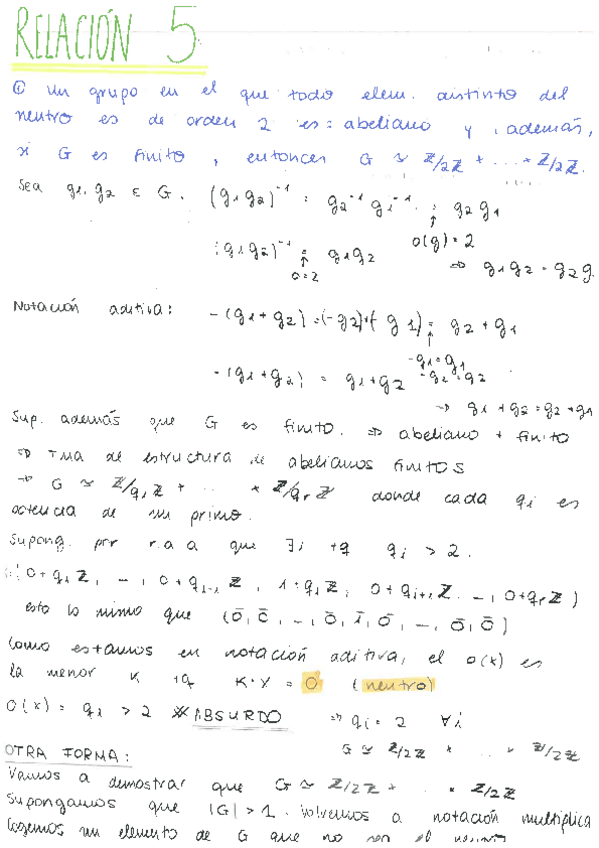 RELACIÓN 5
① Un grupo en el que todo elem. distinto del
neutro es de orden 2 es: abeliano y, además,
si G es finito, entonces G ≃ Z/2Z + ... + Z/2Z.
Sea g1, g2 ∈ G. (g1g2)^-1 = g2^-1 g1^-1 = g2g1
↑
o(g)=2
(g1g2)^-1 = g1g2
↑
o=2
⇒ g1g2 = g2g
Notación aditiva: -(g1+g2) = (-g2)+(-g1) = g2+g1
↑
-g1=g1
-g2=g2
-(g1+g2) = g1+g2
→ g1+g2=g2+g1
Sup. además que G es finito. ⇒ abeliano + finito
⇒ Tma de estructura de abelianos finitos
→ G ≃ Z/q1Z + ... + Z/qrZ donde cada qi es
potencia de un primo.
Supong. por r.a.a que ∃i tq qi > 2.
0+q1Z, -, 0+qi-1Z, 1+qiZ, 0+qi+1Z. -, 0+qrZ)
esto lo mismo que (0̄, 0̄, -, 0̄, 1̄, 0̄, -, 0̄, 0̄)
Como estamos en notación aditiva, el o(x) es
la menor K tq K·X = 0 (neutro)
O(x) = qi > 2 ※ABSURDO ⇒ qi = 2 ∀i
G ≃ Z/2Z × ... × Z/2Z
OTRA FORMA:
Vamos a demostrar que G ≃ Z/2Z + ... × Z/2Z
Supongamos que |G| > 1. Volvemos a notación multiplica
Cogemos un elemento de G que no sea el neutro